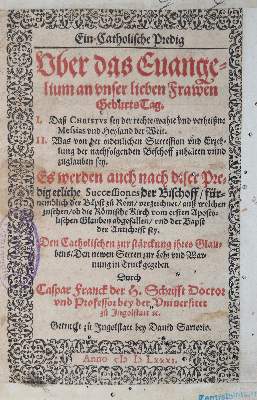 Ein Catholische Predig
Vber das Euange-
lium an vnser lieben Frawen
Geburts Tag.
I. Daß CHRISTVS sey der rechte wahre vnd verheißne
Messias vnd Heyland der Welt.
II. Was von der ordenlichen Succession vnd Erze-
lung der nachfolgenden Bischoff zuhalten vnnd
zuglauben sey.
Es werden auch nach diser Pre-
dig etliche Successiones der Bischoff/ für-
nemblich der Bäpst zu Rom/ verzeichnet/ auß welchen
zusehen/ ob die Römische Kirch vom ersten Aposto-
lischen Glauben abgefallen/ vnd der Bapst
der Antichrist sey.
Den Catholischen zur stärckung jhres Glau-
bens/ Den newen Secten zur Lehr vnd War-
nung in Truck gegeben
Durch
Caspar Franck der H. Schrifft Doctor
vnd Professor bey der Vniuersitet
zu Ingolstatt &c.
Getruckt zu Ingolstatt bey Dauid Sartorio.
Anno